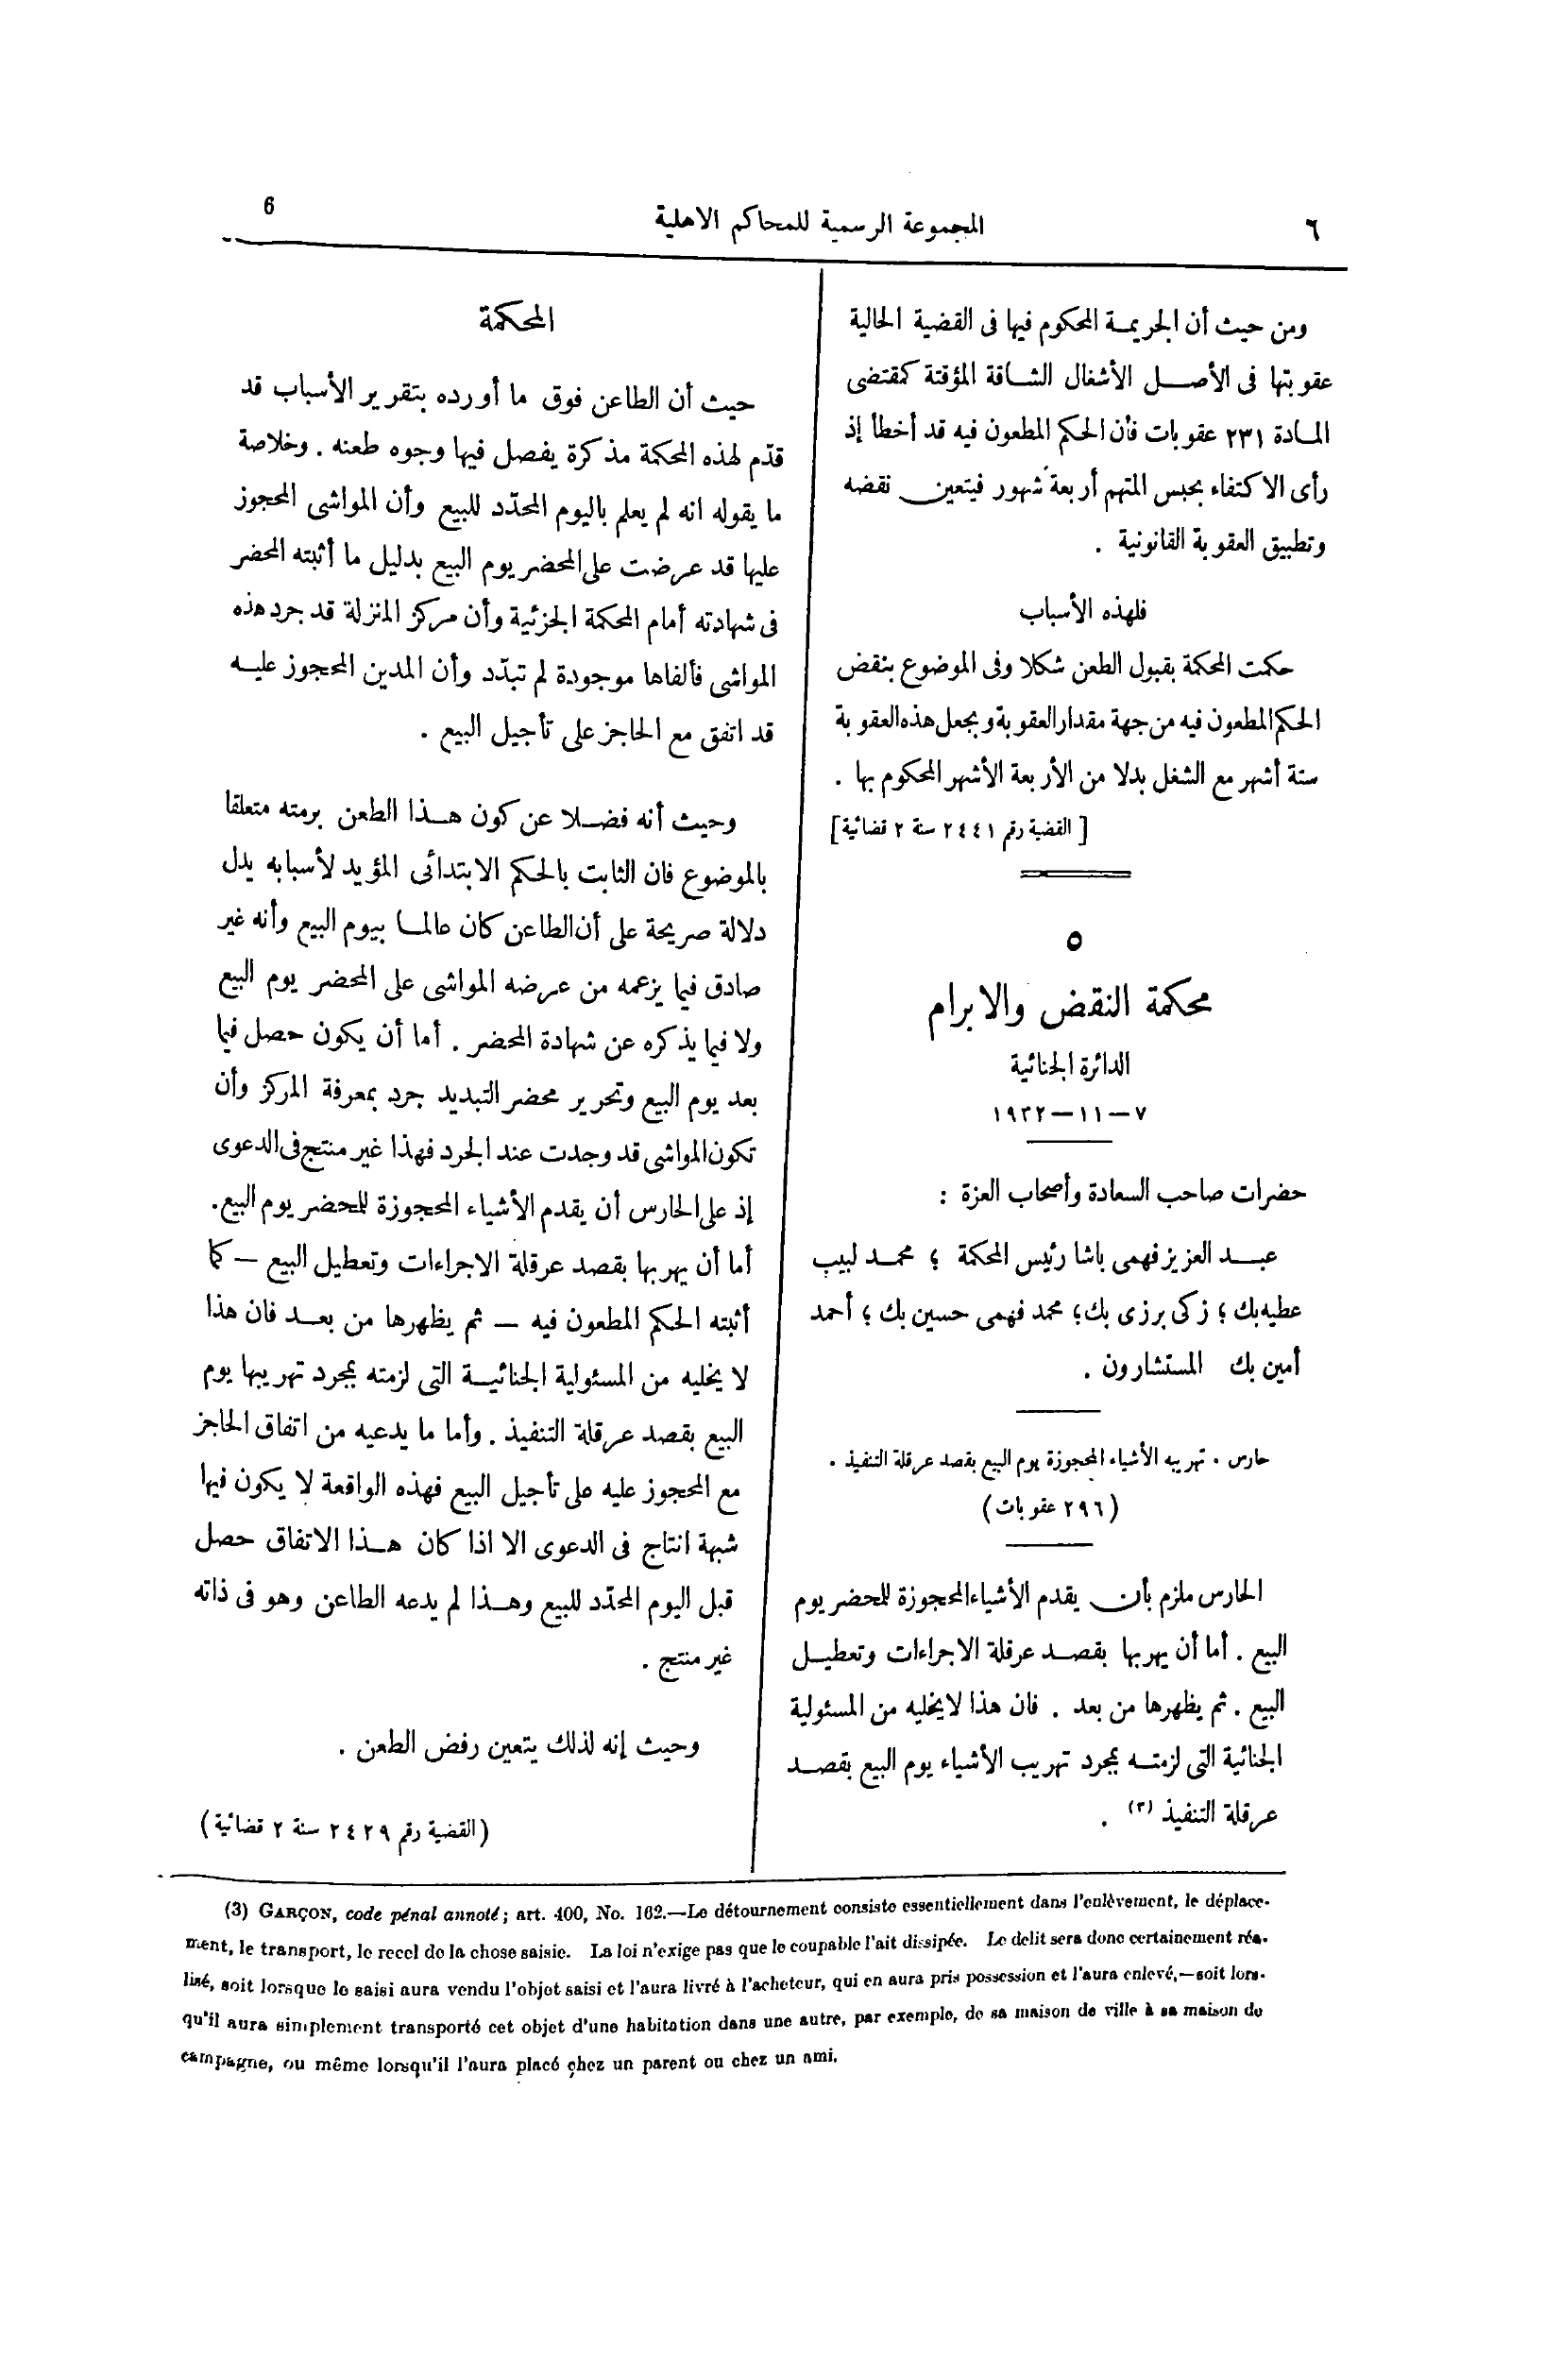 ٦
المجموعة الرسمية للمحاكم الاهلية
6
ومن حيث أن الجريمة المحكوم فيها فى القضية الحالية
عقوبتها فى الأصل الأشغال الشاقة المؤقتة كمقتضى
المادة ٢٣١ عقوبات فأن الحكم المطعون فيه قد أخطأ إذ
رأى الاكتفاء بحبس المتهم أربعة شهور فيتعين نقضه
وتطبيق العقوبة القانونية .
فلهذه الأسباب
حكمت المحكمة بقبول الطعن شكلا وفى الموضوع بنقض
الحكم المطعون فيه من جهة مقدار العقوبة وبجعل هذه العقوبة
ستة أشهر مع الشغل بدلا من الأربعة الأشهر المحكوم بها .
[ القضية رقم ٢٤٤١ سنة ٢ قضائية]
٥
محكمة النقض والابرام
الدائرة الجنائية
٧ — ١١ — ١٩٣٢
حضرات صاحب السعادة وأصحاب العزة :
عبد العزيز فهمى باشا رئيس المحكمة ؛ محمد لبيب
عطيه بك ؛ زكى برزى بك ؛ محمد فهمى حسين بك ؛ أحمد
أمين بك المستشارون .
حارس . تهريبه الأشياء المحجوزة يوم البيع بقصد عرقلة التنفيذ .
(٢٩٦ عقوبات)
الحارس ملزم بأن يقدم الأشياء المحجوزة للحضر يوم
البيع . أما أن يهربها بقصد عرقلة الاجراءات وتعطيل
البيع . ثم يظهرها من بعد . فان هذا لا يخليه من المسئولية
الجنائية التى لزمته بمجرد تهريب الأشياء يوم البيع بقصد
عرقلة التنفيذ (٣) .
المحكمة
حيث أن الطاعن فوق ما أورده بتقرير الأسباب قد
قدّم لهذه المحكمة مذكرة يفصل فيها وجوه طعنه . وخلاصة
ما يقوله انه لم يعلم باليوم المحدّد للبيع وأن المواشى المحجوز
عليها قد عرضت على المحضر يوم البيع بدليل ما أثبته المحضر
فى شهادته أمام المحكمة الجزئية وأن مركز المنزلة قد جرد هذه
المواشى فألفاها موجودة لم تبدّد وأن المدين المحجوز عليه
قد اتفق مع الحاجز على تأجيل البيع .
وحيث أنه فضلا عن كون هذا الطعن برمته متعلقا
بالموضوع فان الثابت بالحكم الابتدائى المؤيد لأسبابه يدل
دلالة صريحة على أن الطاعن كان عالما بيوم البيع وأنه غير
صادق فيما يزعمه من عرضه المواشى على المحضر يوم البيع
ولا فيما يذكره عن شهادة المحضر . أما أن يكون حصل فيما
بعد يوم البيع وتحرير محضر التبديد جرد بمعرفة المركز وأن
تكون المواشى قد وجدت عند الجرد فهذا غير منتج فى الدعوى
إذ على الحارس أن يقدم الأشياء المحجوزة للحضر يوم البيع.
أما أن يهربها بقصد عرقلة الاجراءات وتعطيل البيع — كما
أثبته الحكم المطعون فيه — ثم يظهرها من بعد فان هذا
لا يخليه من المسئولية الجنائية التى لزمته بمجرد تهريبها يوم
البيع بقصد عرقلة التنفيذ . وأما ما يدعيه من اتفاق الحاجز
مع المحجوز عليه على تأجيل البيع فهذه الواقعة لا يكون فيها
شبهة انتاج فى الدعوى الا اذا كان هذا الاتفاق حصل
قبل اليوم المحدّد للبيع وهذا لم يدعه الطاعن وهو فى ذاته
غير منتج .
وحيث إنه لذلك يتعين رفض الطعن .
(القضية رقم ٢٤٢٩ سنة ٢ قضائية)
(3) GARÇON, code pénal annoté; art. 400, No. 162.—Le détournement consiste essentiellement dans l'enlèvement, le déplace-
ment, le transport, le recel de la chose saisie. La loi n'exige pas que le coupable l'ait dissipée. Le delit sera donc certainement réa-
lisé, soit lorsque le saisi aura vendu l'objet saisi et l'aura livré à l'acheteur, qui en aura pris possession et l'aura enlevé,—soit lors-
qu'il aura simplement transporté cet objet d'une habitation dans une autre, par exemple, de sa maison de ville à sa maison de
campagne, ou même lorsqu'il l'aura placé chez un parent ou chez un ami.